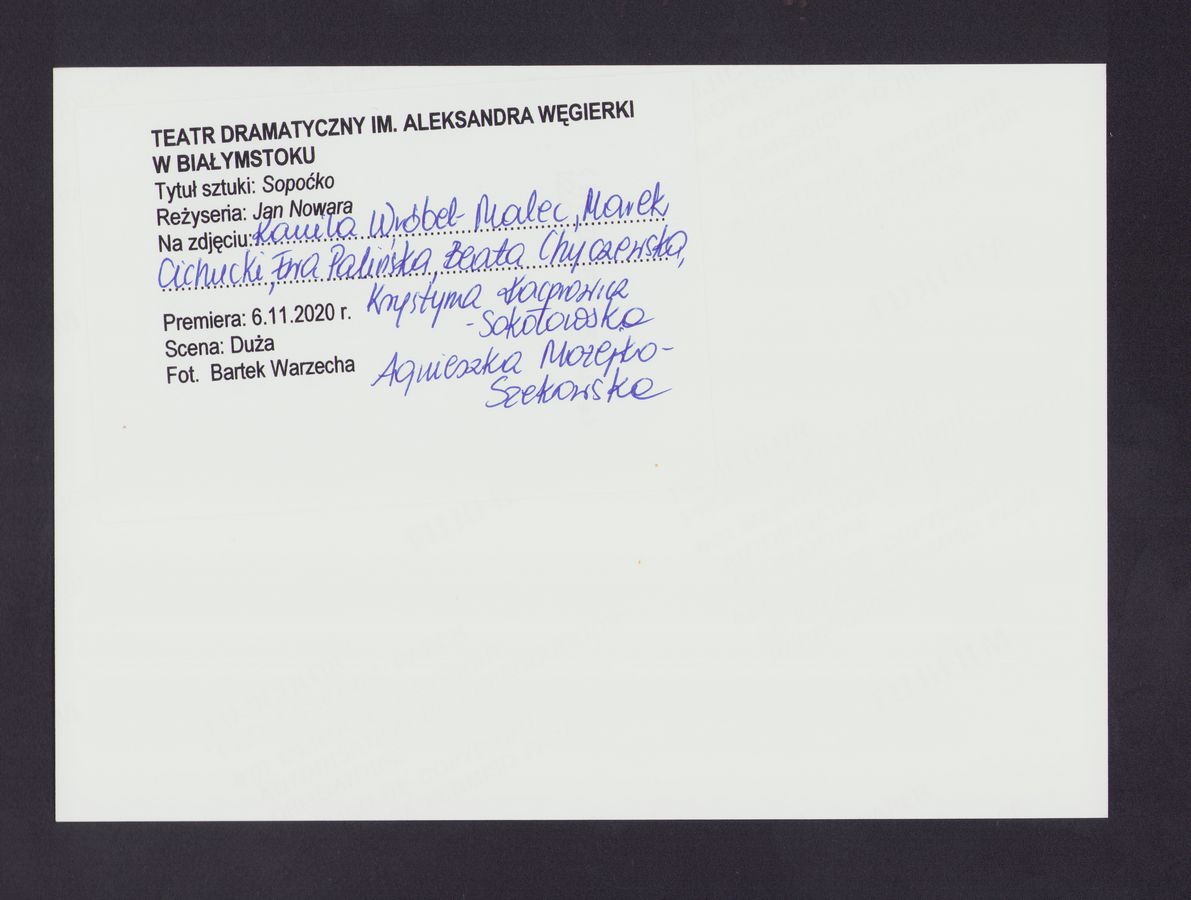 TEATR DRAMATYCZNY IM. ALEKSANDRA WĘGIERKI
W BIAŁYMSTOKU
Tytuł sztuki: Sopoćko
Reżyseria: Jan Nowara
Na zdjęciu: Kamila Wróbel-Malec, Marek
Cichucki, Ewa Palińska, Beata Chyczewska,
Krystyna Kacprowicz
-Sokołowska
Agnieszka Możejko-
Szekowska
Premiera: 6.11.2020 r.
Scena: Duża
Fot. Bartek Warzecha